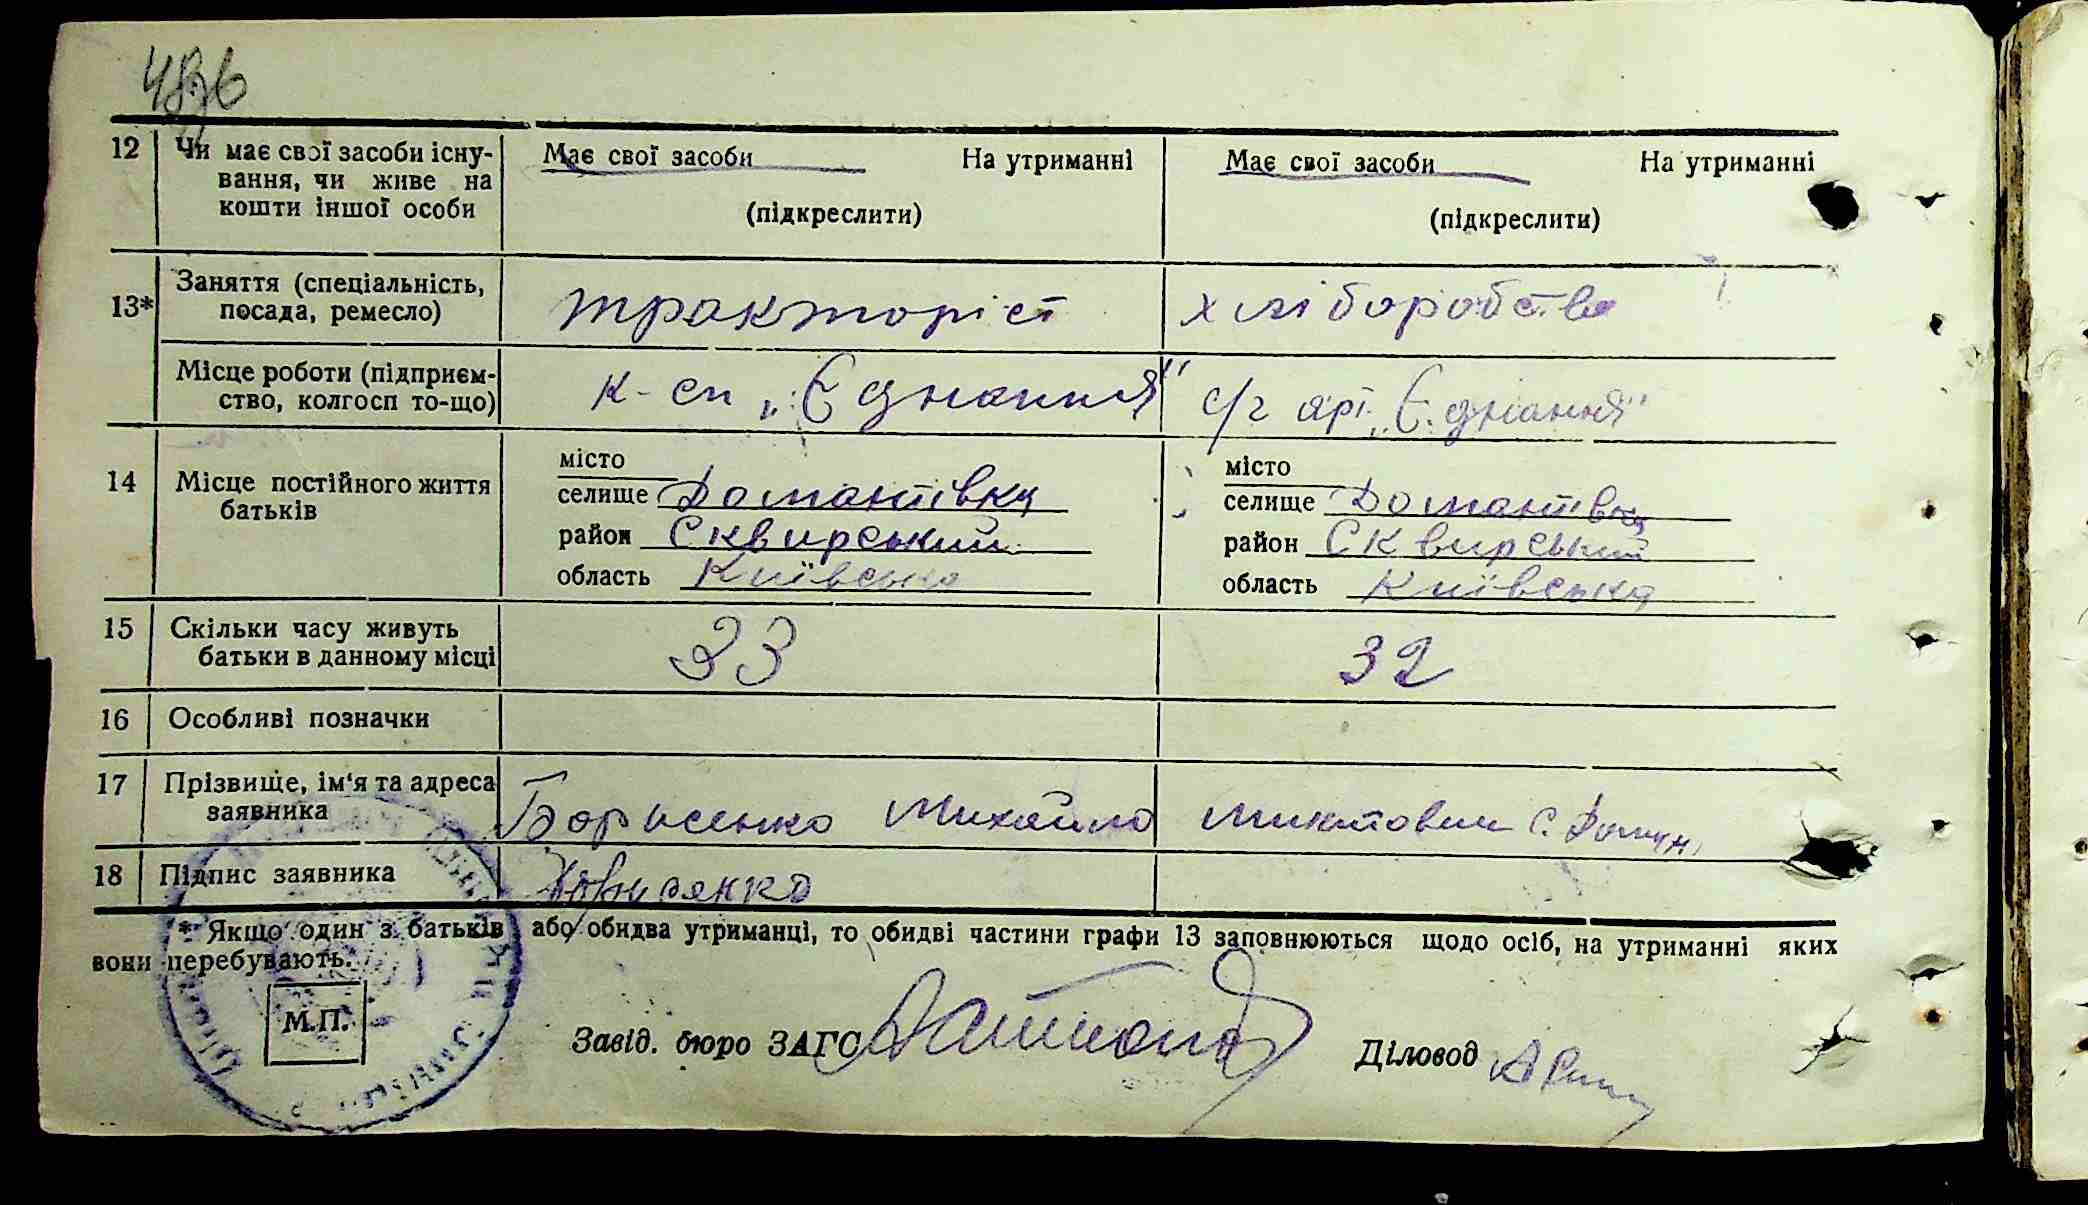 12 Чи має свої засоби існу- Має свої засоби На утриманні Має свої засоби На утриманні
вання, чи живе на
кошти іншої особи (підкреслити) (підкреслити)
13* Заняття (спеціальність, трокторіст хліборобство
посада, ремесло)
Місце роботи (підприєм- к-сп „Єднання" с/г арі „Єднання"
ство, колгосп то-що)
14 Місце постійного життя місто місто
батьків селище Домантівка селище Домантівка
район Сквирський район Сквирський
область Київська область Київська
15 Скільки часу живуть 33 32
батьки в данному місці
16 Особливі позначки
17 Прізвище, ім'я та адреса Борисенко Михайло с.
заявника
18 Підпис заявника Борисенко
* Якщо один з батьків або обидва утриманці, то обидві частини графи 13 заповнюються щодо осіб, на утриманні яких
вони перебувають.
М.П.
Завід. бюро ЗАГС Діловод